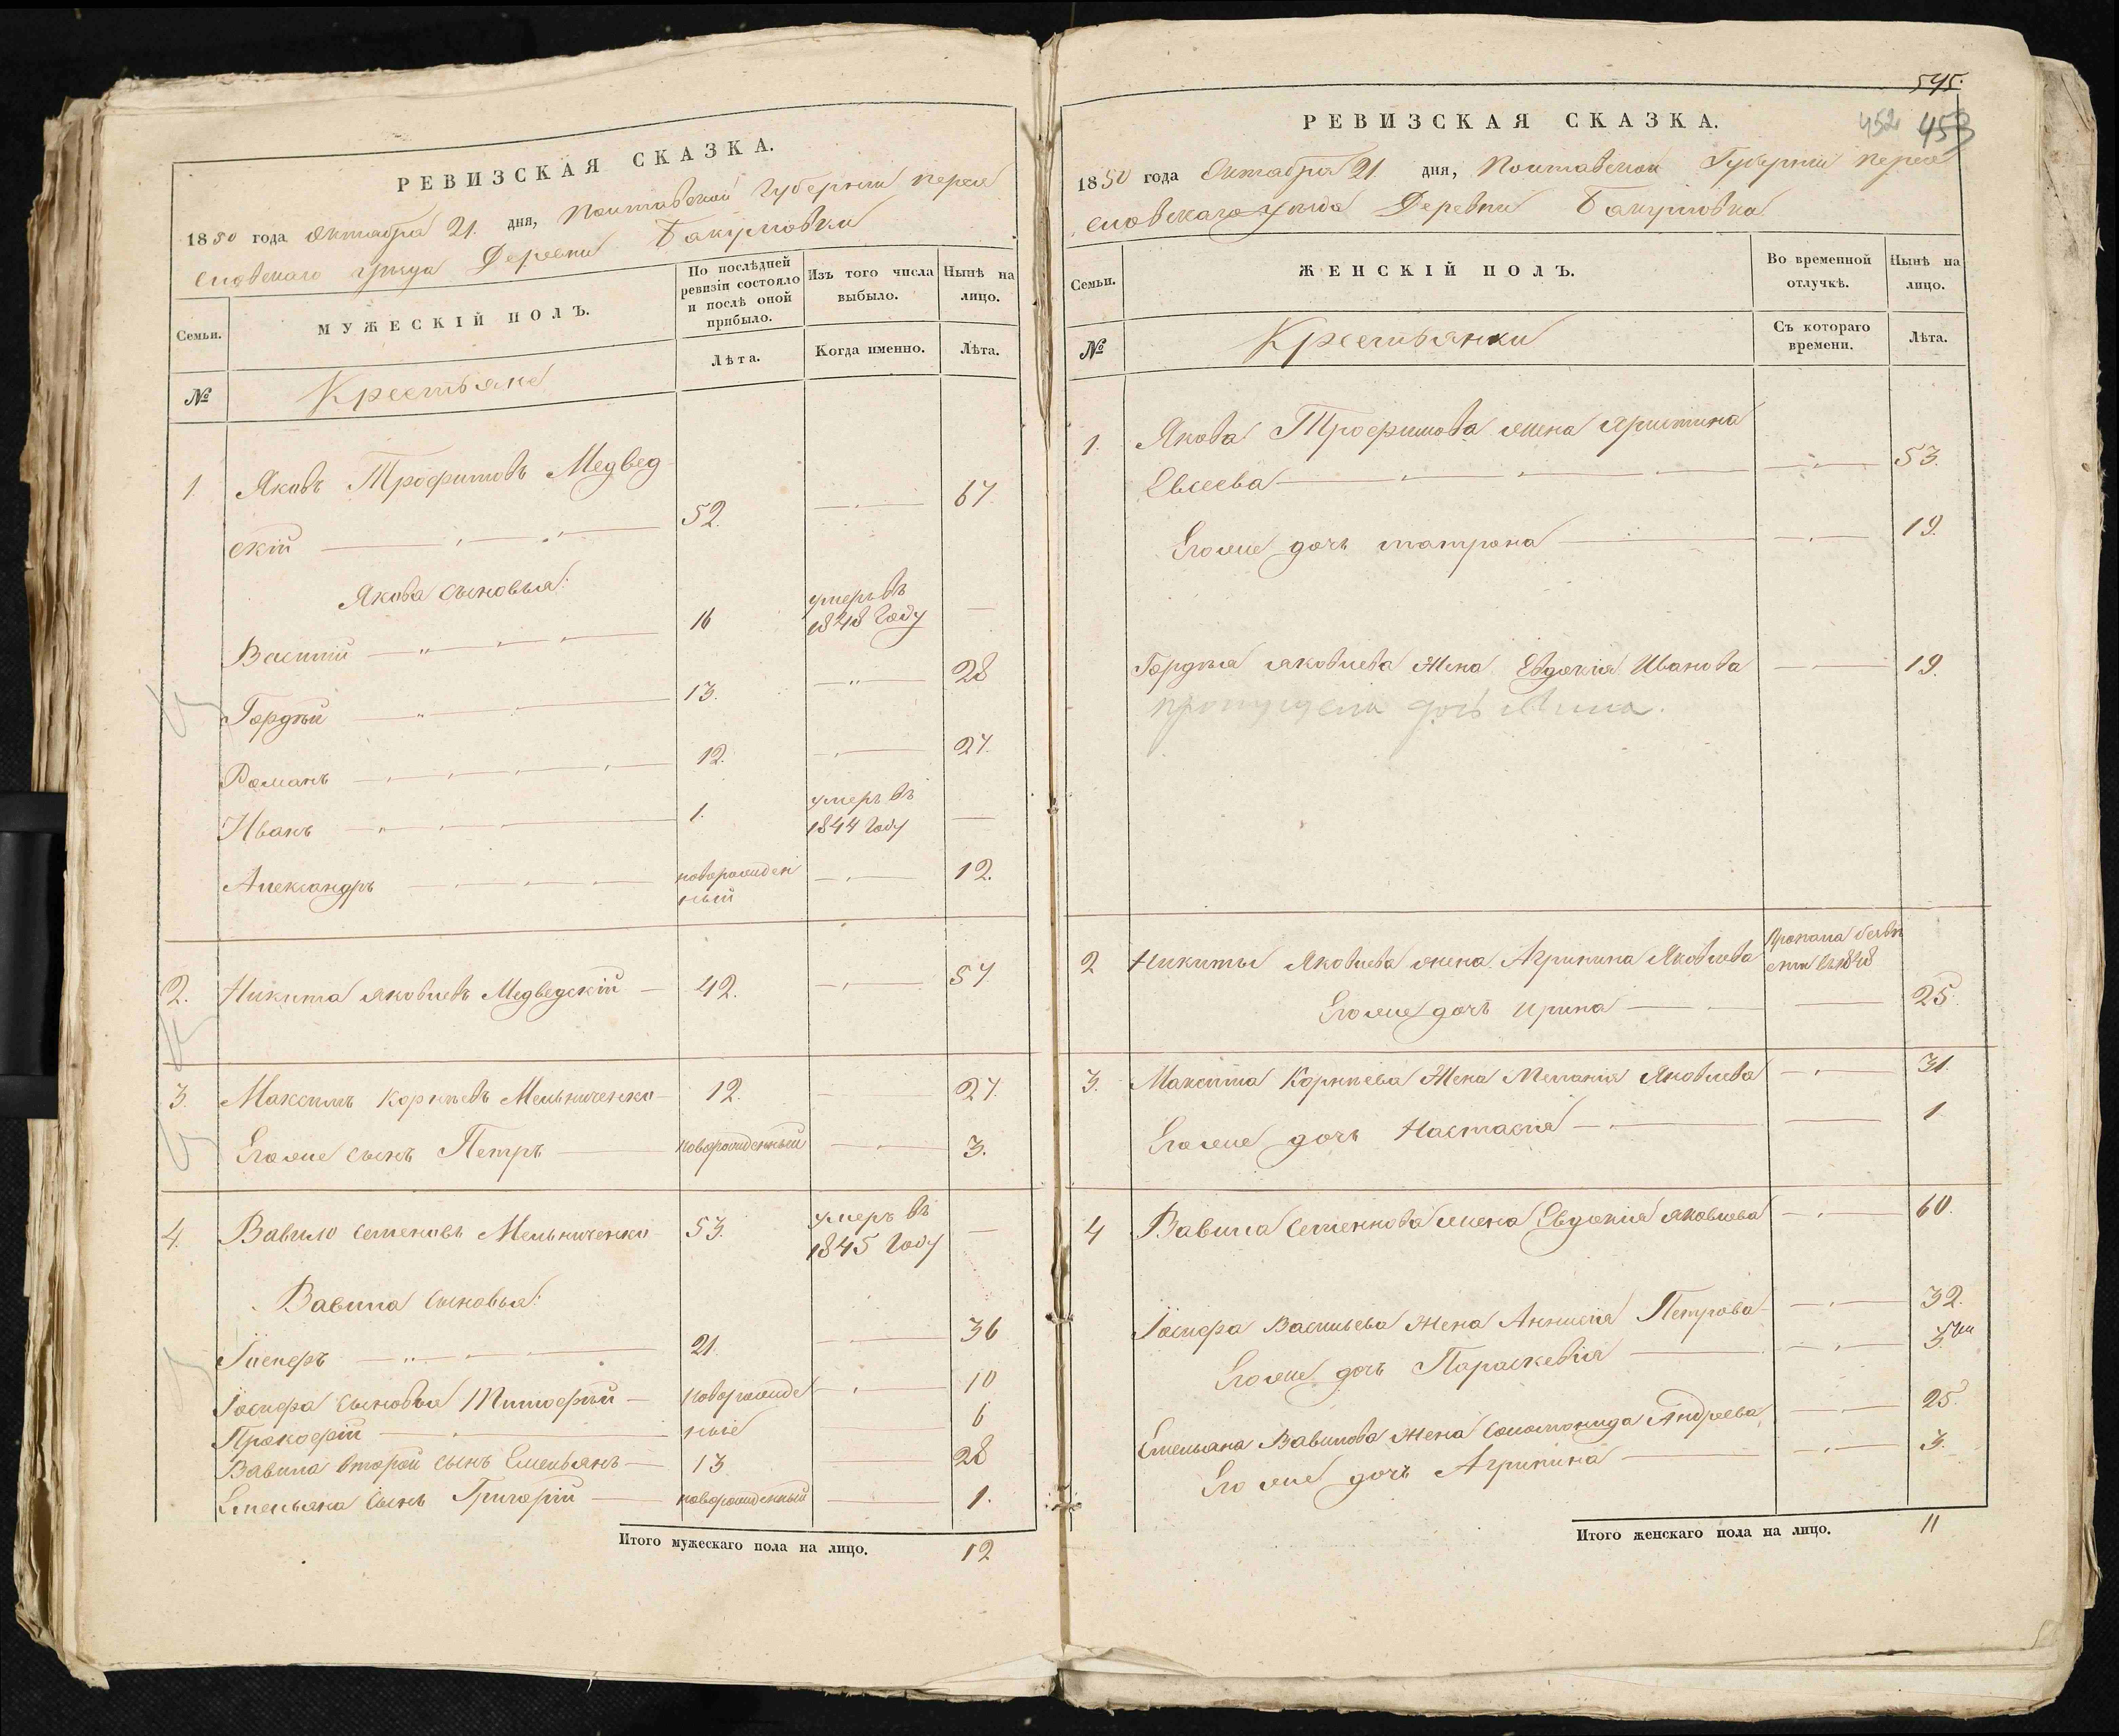 РЕВИЗСКАЯ СКАЗКА.
1850 года Октября 21. дня, Полтавской Губерніи Перея
славскаго уѣзда Деревни Бакумовки
Семьи.
МУЖЕСКІЙ ПОЛЪ.
По послѣдней ревизіи состояло и послѣ оной прибыло.
Изъ того числа выбыло.
Нынѣ на лицо.
№
Крестьяне
Лѣта.
Когда именно.
Лѣта.
1. Яковъ Трофимовъ Медвед
скій 52. 67.
Якова сыновья:
Василій 16 умеръ въ
1848 году
Гордѣй 13. 28
Романъ 12. 27.
Иванъ 1. умеръ въ
1844 году
Александръ новорожден
ный 12.
2. Никита Яковлевъ Медведскій 42. 57
3. Максимъ Корнѣевъ Мельниченко 12. 27.
Его же сынъ Петръ новорожденный 3.
4. Вавило Семеновъ Мельниченко 53. умеръ въ
1845 году
Вавила сыновья:
21. 36
Іосифа сыновья Тимофѣй новорожде 10
Прокофій ные 6
Вавила второй сынъ Емельянъ 13 28
Емельяна сынъ Григорій новорожденный 1.
Итого мужескаго пола на лицо. 12
545.
452 453
РЕВИЗСКАЯ СКАЗКА.
1850 года Октября 21. дня, Полтавской Губерніи Перея
славскаго уѣзда Деревни Бакумовки
Семьи.
ЖЕНСКІЙ ПОЛЪ.
Во временной отлучкѣ.
Нынѣ на лицо.
№
Крестьянки
Съ котораго времени.
Лѣта.
1. Якова Трофимова жена Христина
Евсеева 53.
Его же дочь Матрона 19.
Гордѣя Яковлева жена Евдокія Иванова 19.
пропущена дочь
2 Никиты Яковлева жена Агрипина Яковлева Пропала безвѣ
сти съ 1848
Его же дочь Ирина 25.
3. Максима Корнѣева жена Меланія Яковлева 31.
Его же дочь Настасія 1
4 Вавила Семенова жена Евдокія Яковлева 60.
Іосифа Васильева жена Анисія Петрова 32.
Его же дочь Параскевія
Емельяна Вавилова жена Соломонида Андреева 25.
Его же дочь Агрипина 3.
Итого женскаго пола на лицо. 11